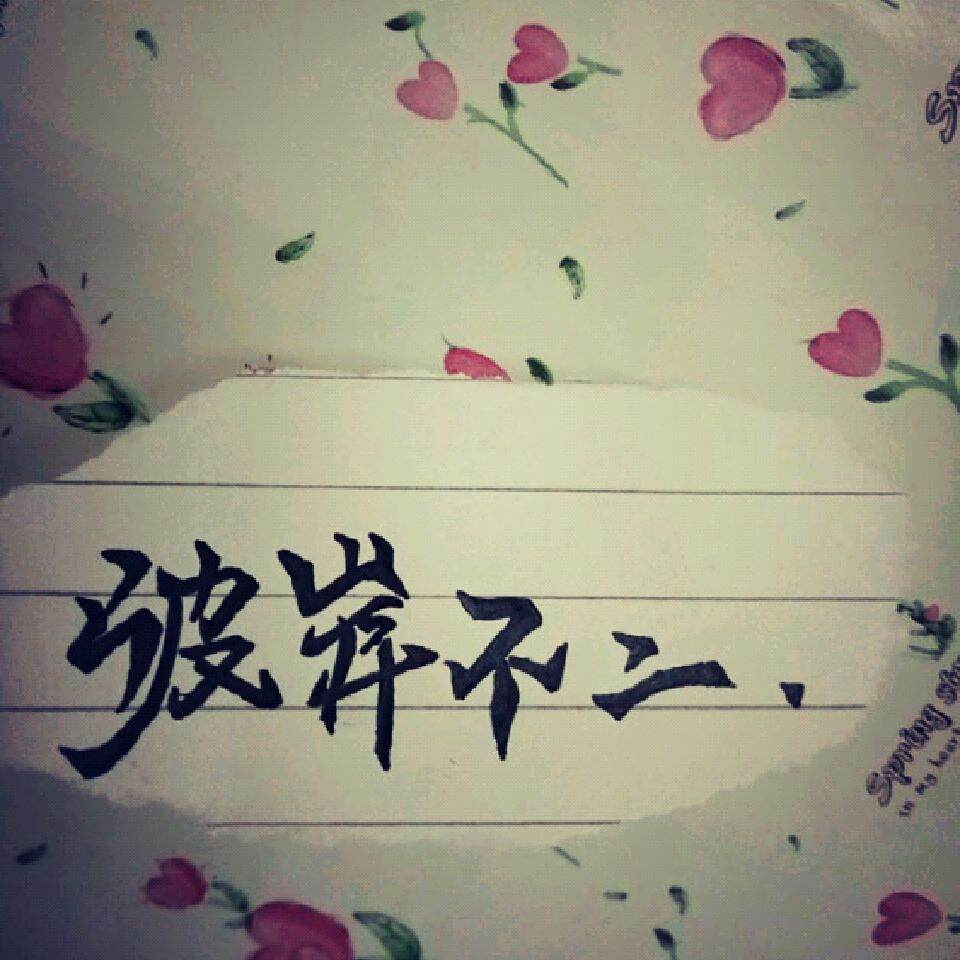 彼岸不二.
Spring
in my heart